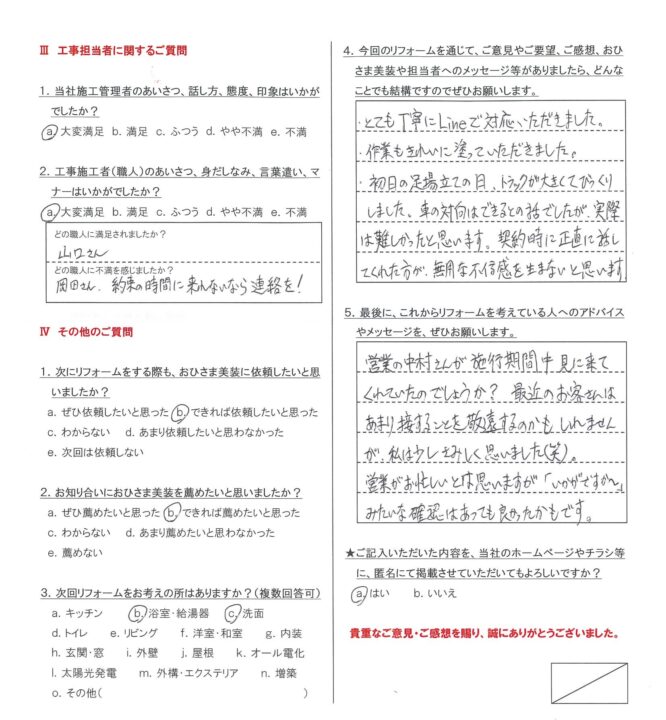 Ⅲ 工事担当者に関するご質問
1. 当社施工管理者のあいさつ、話し方、態度、印象はいかが
でしたか？
a.大変満足 b. 満足 c. ふつう d. やや不満 e. 不満
2. 工事施工者(職人)のあいさつ、身だしなみ、言葉遣い、マ
ナーはいかがでしたか？
a.大変満足 b. 満足 c. ふつう d. やや不満 e. 不満
どの職人に満足されましたか？
山口さん
どの職人に不満を感じましたか？
岡田さん、約束の時間に来れないなら連絡を!
Ⅳ その他のご質問
1. 次にリフォームをする際も、おひさま美装に依頼したいと思
いましたか？
a. ぜひ依頼したいと思った b.できれば依頼したいと思った
c. わからない d. あまり依頼したいと思わなかった
e. 次回は依頼しない
2. お知り合いにおひさま美装を薦めたいと思いましたか？
a. ぜひ薦めたいと思った b.できれば薦めたいと思った
c. わからない d. あまり薦めたいと思わなかった
e. 薦めない
3. 次回リフォームをお考えの所はありますか？(複数回答可)
a. キッチン b.浴室・給湯器 c.洗面
d.トイレ e. リビング f. 洋室・和室 g. 内装
h. 玄関・窓 i. 外壁 j. 屋根 k. オール電化
l. 太陽光発電 m. 外構・エクステリア n. 増築
o. その他( )
4. 今回のリフォームを通じて、ご意見やご要望、ご感想、おひ
さま美装や担当者へのメッセージ等がありましたら、どんな
ことでも結構ですのでぜひお願いします。
・とても丁寧にLineで対応いただきました。
・作業もきれいに塗っていただきました。
・初日の足場立ての日、トラックが大きくてびっくり
しました、車の対向はできるとの話でしたが、実際
は難しかったと思います。契約時に正直に話し
てくれた方が、無用な不信感を生まないと思います
5. 最後に、これからリフォームを考えている人へのアドバイス
やメッセージを、ぜひお願いします。
営業の中村さんが施行期間中見に来て
くれていたのでしょうか？ 最近のお客さんは
あまり接することを敬遠するのかもしれません
が、私は少しさみしく思いました(笑)。
営業がお忙しいとは思いますが「いかがですか〜」
みたいな確認はあっても良かったかもです。
★ご記入いただいた内容を、当社のホームページやチラシ等
に、匿名にて掲載させていただいてもよろしいですか？
a.はい b. いいえ
貴重なご意見・ご感想を賜り、誠にありがとうございました。